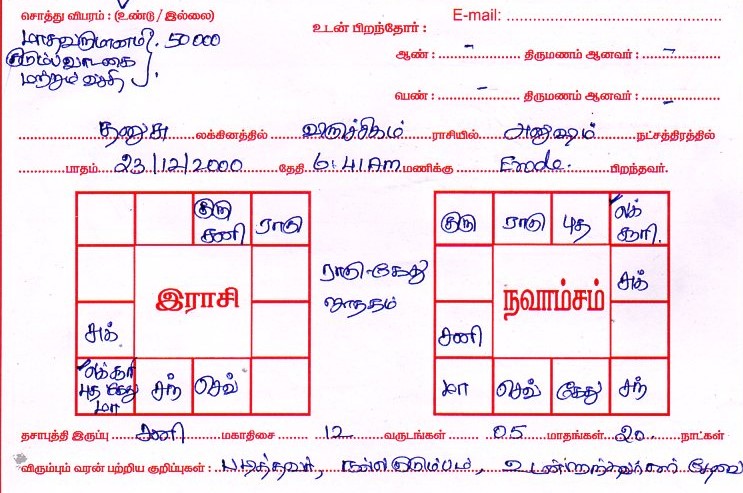 சொத்து விபரம் : (உண்டு / இல்லை)
E-mail:
மாதவருமானம் 50000
உடன் பிறந்தோர் :
குடும்ப வாடகை
ஆண் : - திருமணம் ஆனவர் : -
மற்றும் வசதி
பெண் : - திருமணம் ஆனவர் : -
தனுசு லக்கினத்தில் விருச்சிகம் ராசியில் அனுஷம் நட்சத்திரத்தில்
பாதம் 23/12/2000 தேதி 6:41 AM மணிக்கு Erode. பிறந்தவர்.
குரு சனி ராகு
இராசி
சுக்
புத கேது மா
சந் செவ்
ராகு-கேது
ஜாதகம்
குரு ராகு புத சூரி.
நவாம்சம்
சுக்
சனி
மா செவ் கேது சந்
தசாபுத்தி இருப்பு சனி மகாதிசை 12 வருடங்கள் 05 மாதங்கள் 20 நாட்கள்
விரும்பும் வரன் பற்றிய குறிப்புகள் : படித்தவர், நல்ல குடும்பம், தேவை